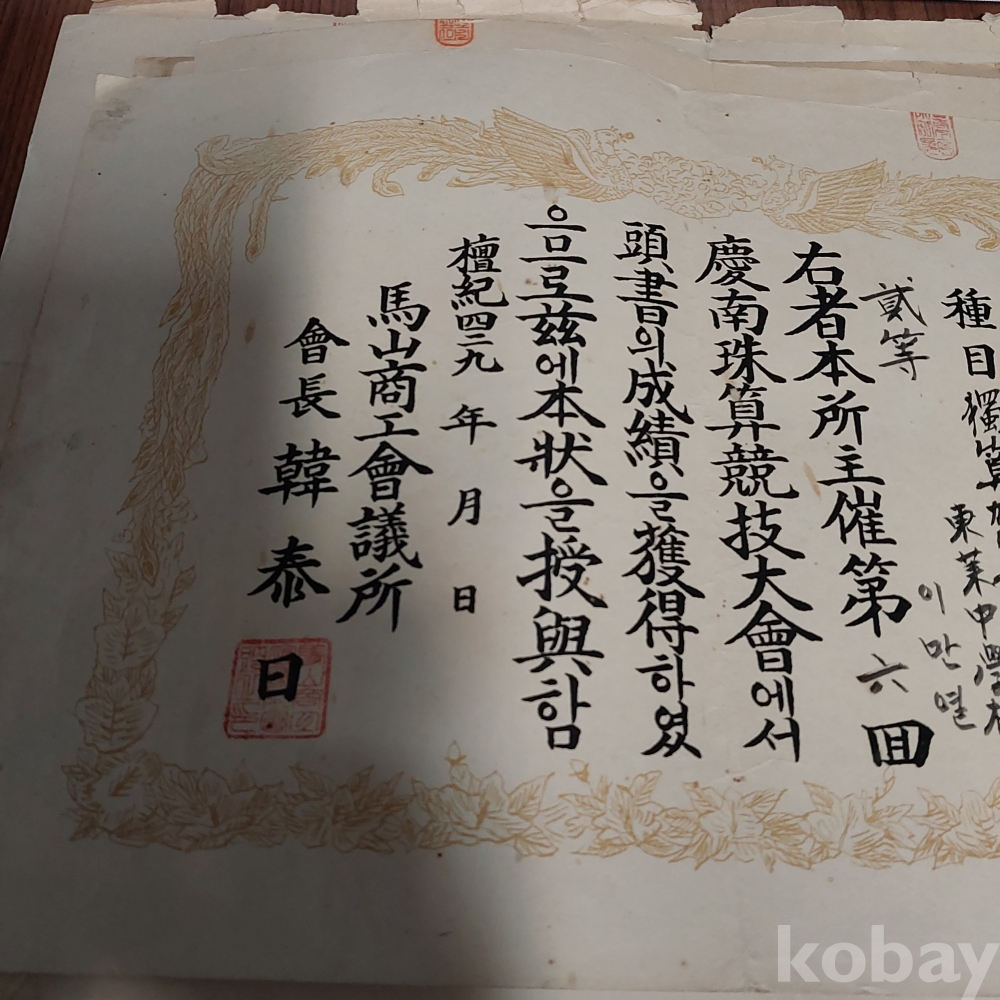 種目獨算
東萊中學校
이만열
貳等
右者本所主催第六回
慶南珠算競技大會에서
頭書의成績을獲得하였
으므로玆에本狀을授與함
檀紀四二九 年 月 日
馬山商工會議所
會長 韓泰日
kobay